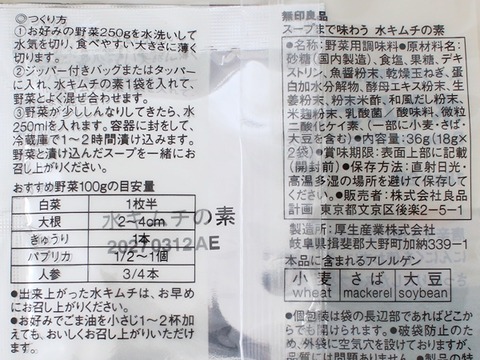 ◎つくり方
①お好みの野菜250gを水洗いして
水気を切り、食べやすい大きさに薄く
切ります。
②ジッパー付きバッグまたはタッパー
に入れ、水キムチの素1袋を入れて、
野菜とよく混ぜ合わせます。
③野菜が少ししんなりしてきたら、水
250mlを入れます。容器に封をして、
冷蔵庫で1〜2時間漬け込みます。
野菜と漬け込んだスープを一緒にお
召し上がりください。
おすすめ野菜100gの目安量
白菜 1枚半
大根 2〜4cm
きゅうり 1本
パプリカ 1/2〜1個
人参 3/4本
水キムチの素
20270312AE
●出来上がった水キムチは、お早め
にお召し上がりください。
●お好みでごま油を小さじ1〜2杯加
えても、おいしくお召し上がりいただけ
ます。
無印良品
スープまで味わう 水キムチの素
●名称:野菜用調味料●原材料名:
砂糖(国内製造)、食塩、果糖、デキ
ストリン、魚醤粉末、乾燥玉ねぎ、蛋
白加水分解物、酵母エキス粉末、生
姜粉末、粉末米酢、和風だし粉末、
米麹粉末、乳酸菌/酸味料、微粒
二酸化ケイ素、(一部に小麦・さば・
大豆を含む)●内容量:36g(18g×
2袋)●賞味期限:表面上部に記載
(開封前)●保存方法:直射日光・
高温多湿の場所を避けて保存してく
ださい。●販売者:株式会社良品
計画 東京都文京区後楽2-5-1
製造所:厚生産業株式会社
岐阜県揖斐郡大野町加納339-1
本品に含まれるアレルゲン
小麦 さば 大豆
wheat mackerel soybean
●個包装は袋の長辺部であればどこか
らでも開けられます。●破袋防止のた
め、外袋に空気穴を設けておりますが、
品質には問題ありません。●製品の特